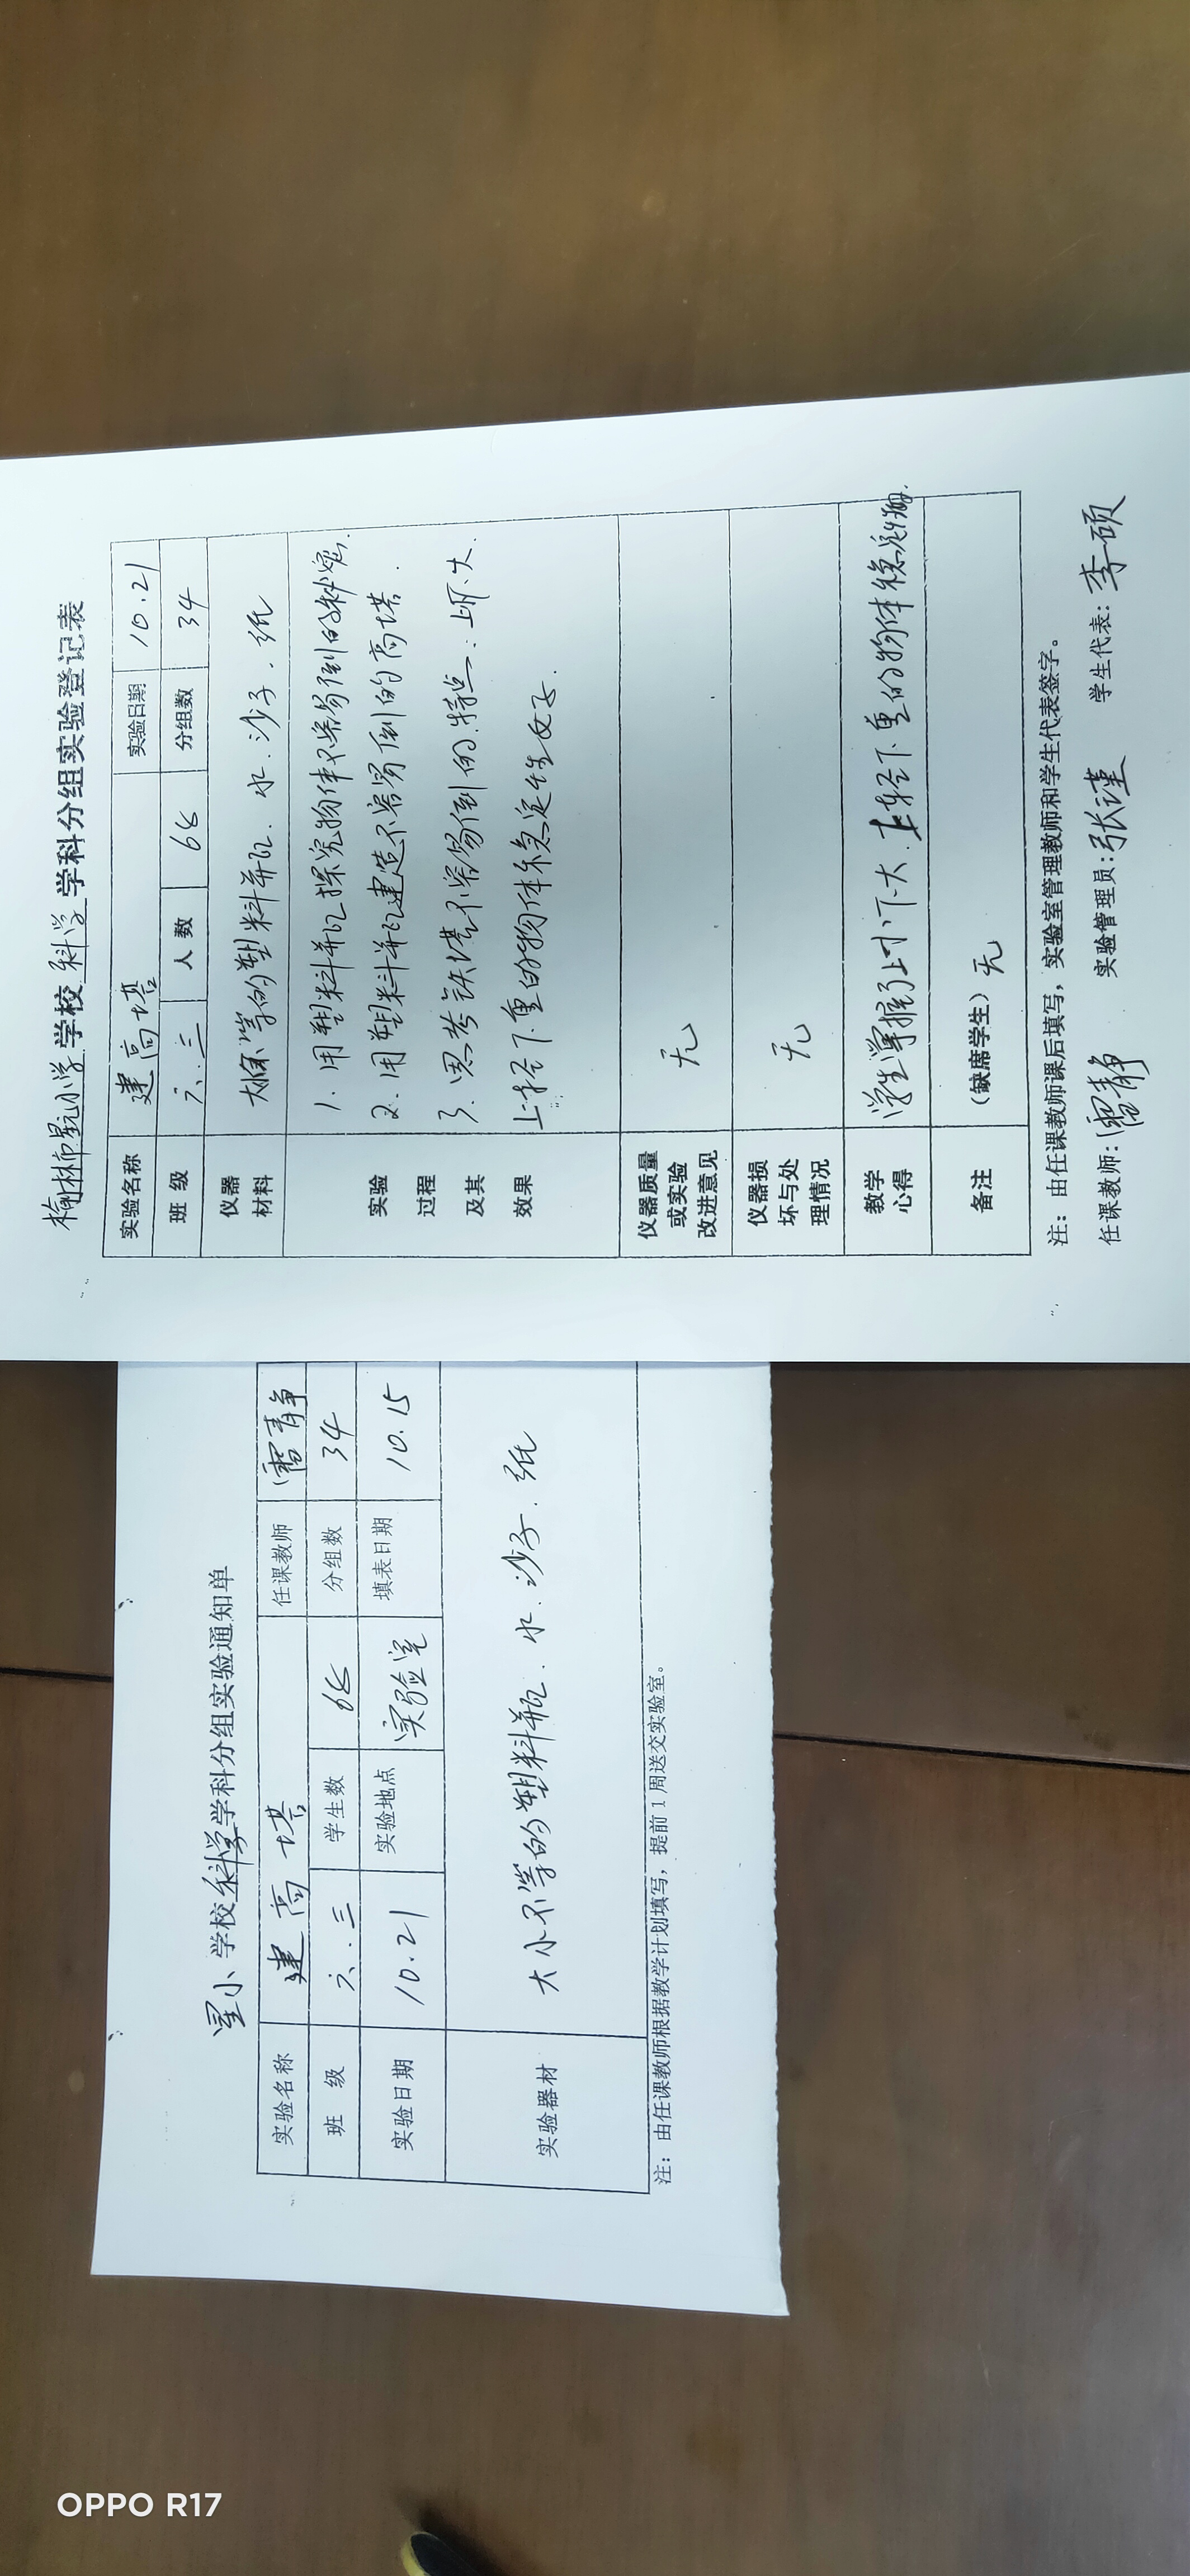 榆林市星元小学学校科学学科分组实验登记表
实验名称 建高塔 实验日期 10.21
班级 六.三 人数 68 分组数 34
仪器材料 大小不等的塑料瓶.水.沙子.纸
实验过程及其效果
1.用塑料瓶探究物体不容易倒的秘密.
2.用塑料瓶建造不容易倒的高塔.
3.思考铁塔不容易倒的特点:上小下大
上轻下重的物体稳定性好.
仪器质量或实验改进意见 无
仪器损坏与处理情况 无
教学心得 学生掌握了上小下大.上轻下重的物体稳定
备注 (缺席学生) 无
注:由任课教师课后填写,实验室管理教师和学生代表签字。
任课教师:雷静 实验管理员:张谨 学生代表:李硕
星小学校科学学科分组实验通知单
实验名称 建高塔 任课教师 雷静
班级 六.三 学生数 68 分组数 34
实验日期 10.21 实验地点 实验室 填表日期 10.15
实验器材 大小不等的塑料瓶.水.沙子.纸
注:由任课教师根据教学计划填写,提前1周送交实验室。
OPPO R17